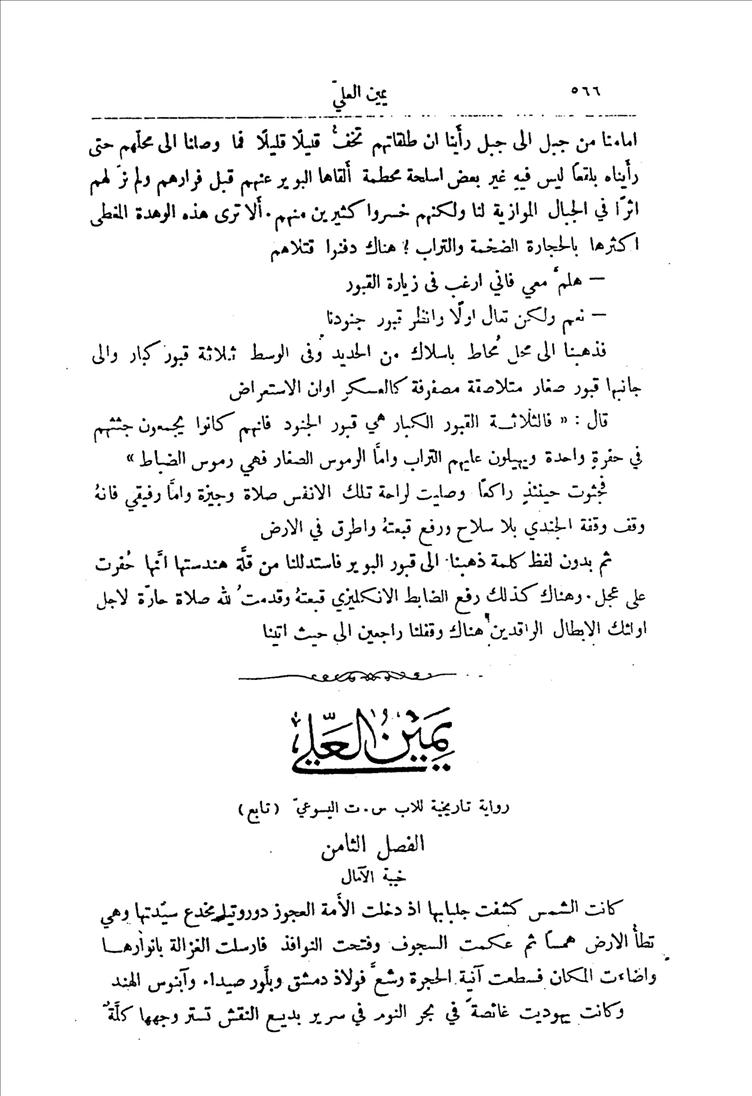 ٥٦٦
يمين العليّ
امامنا من جبل الى جبل رأينا ان طلقاتهم تخفّ قليلًا قليلًا فما وصلنا الى محلّهم حتى
رأيناه بلقعًا ليس فيهِ غير بعض اسلحة محطمة ألقاها البوير عنهم قبل فرارهم ولم نرَ لهم
اثرًا في الجبال الموازية لنا ولكنهم خسروا كثيرين منهم. ألا ترى هذه الوهدة المغطى
اكثرها بالحجارة الضخمة والتراب ? هناك دفنوا قتلاهم
— هلمَّ معي فاني ارغب في زيارة القبور
— نعم ولكن تعال اولًا وانظر قبور جنودنا
فذهبنا الى محل مُحاط باسلاك من الحديد وفي الوسط ثلاثة قبور كبار والى
جانبها قبور صغار متلاصقة مصفوفة كالعسكر اوان الاستعراض
قال : « فالثلاثة القبور الكبار هي قبور الجنود فانهم كانوا يجمعون جثثهم
في حفرةٍ واحدة ويهيلون عليهم التراب وامَّا الرموس الصغار فهي رموس الضباط »
فجثوت حينئذٍ راكعًا وصليت لراحة تلك الانفس صلاة وجيزة وامَّا رفيقي فانهُ
وقف وقفة الجندي بلا سلاح ورفع قبعتهُ واطرق في الارض
ثم بدون لفظ كلمة ذهبنا الى قبور البوير فاستدللنا من قلَّة هندستها انَّها حُفرت
على عجل. وهناك كذلك رفع الضابط الانكليزي قبعتهُ وقدمتُ لله صلاة حارّة لاجل
اولئك الابطال الراقدين هناك وقفلنا راجعين الى حيث اتينا
يمين العلي
رواية تاريخية للاب س. ت اليسوعيّ (تابع)
الفصل الثامن
خيبة الآمال
كانت الشمس كشفت جلبابها اذ دخلت الأمة العجوز دوروتيا مخدع سيّدتها وهي
تطأُ الارض همسًا ثم عكمت السجوف وفتحت النوافذ فارسلت الغزالة بانوارها
واضاءت المكان فسطعت آنية الحجرة وشعَّ فولاذ دمشق وبلّور صيداء وآبنوس الهند
وكانت يهوديت غائصةً في بحر النوم في سرير بديع النقش تستر وجهها كلَّةٌ